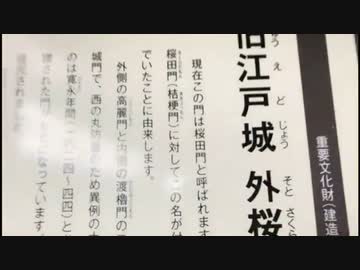 重要文化財(建造
旧江戸城 外桜
うえ ど じょう そと さくら
現在この門は桜田門と呼ばれます
桜田門(桔梗門)に対してこの名が付
でいたことに由来します。
外側の高麗門と内側の渡櫓門の
城門で、西の丸防備のため異例の大
のは寛永年間(一六二四~四四)と